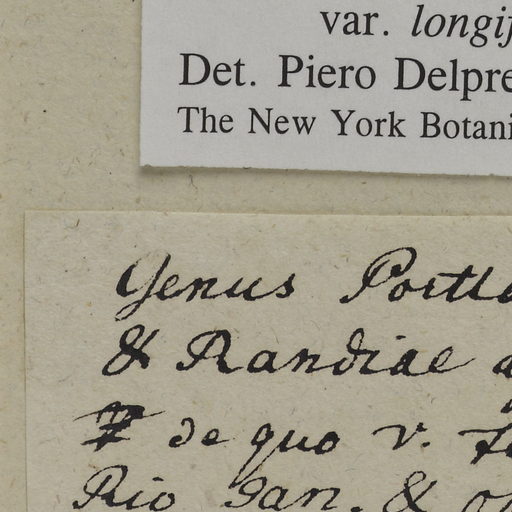 var. longif
Det. Piero Delpre
The New York Botani
Genus Portla
& Randiae a
de quo v.
Rio Jan. & o